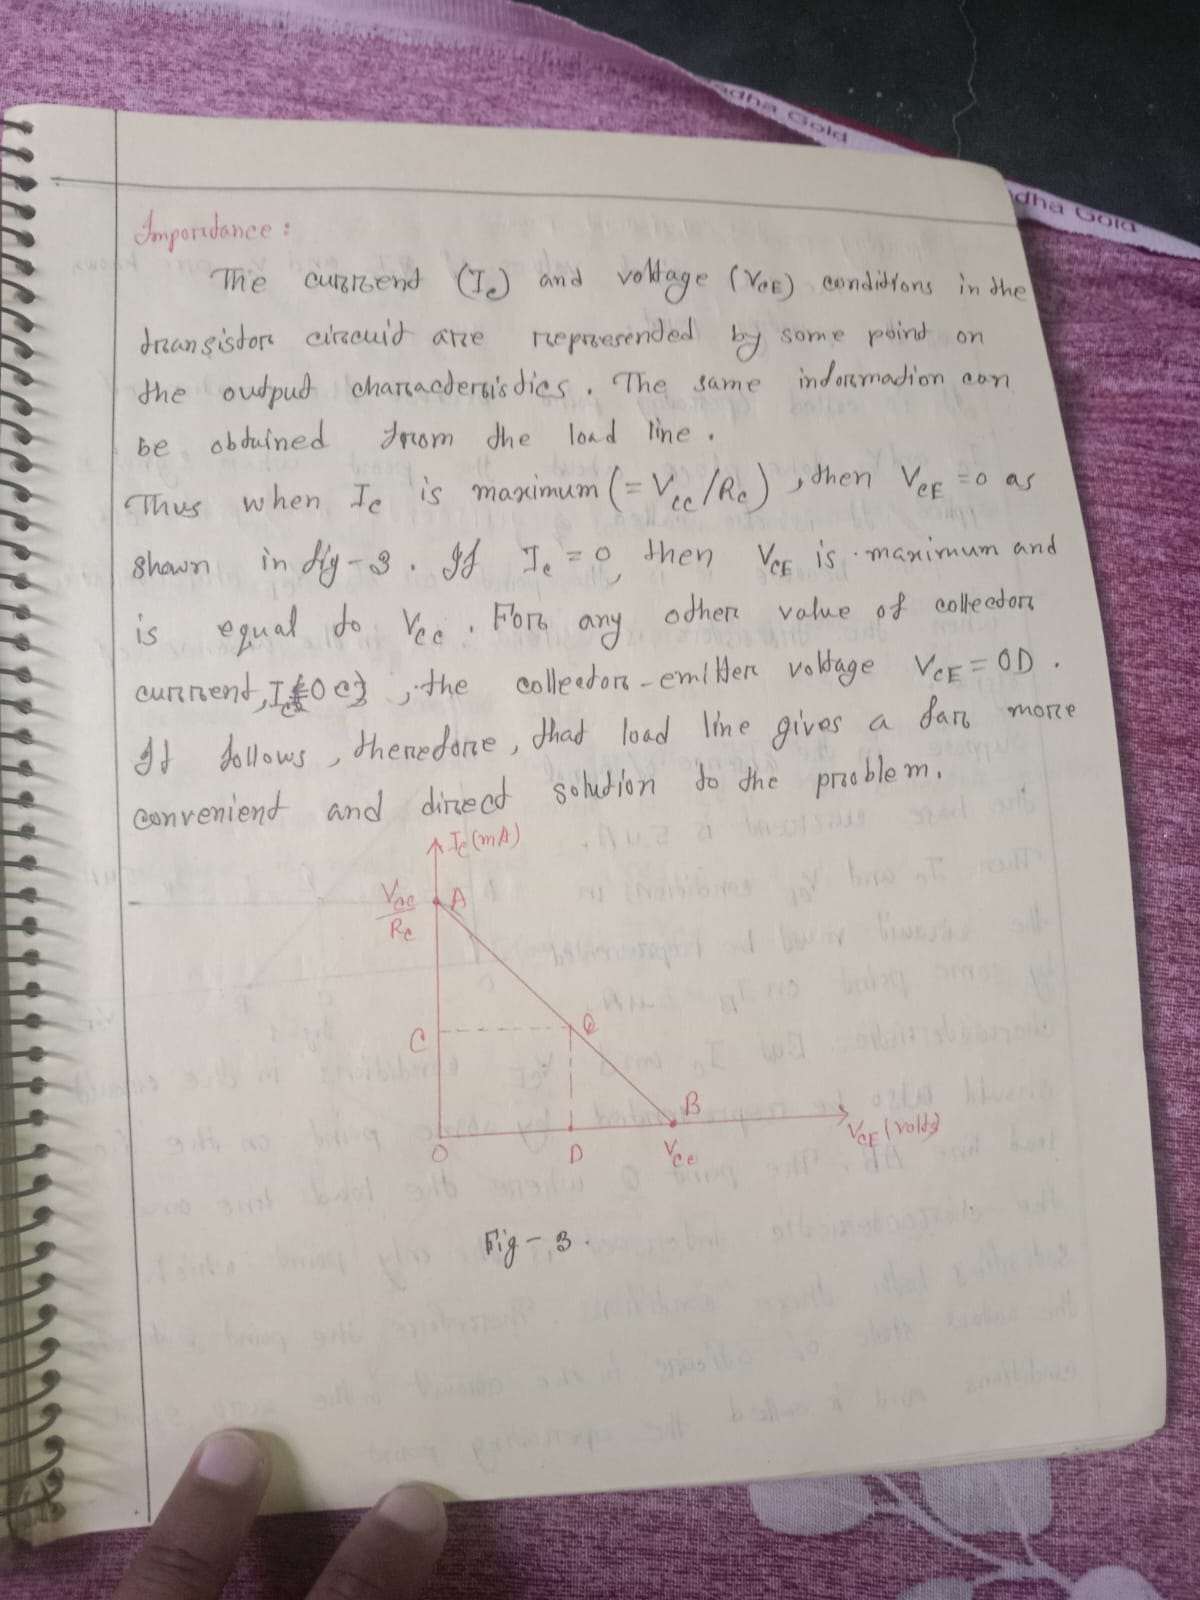 Importance :
The current (Ic) and voltage (VCE) conditions in the
transistor circuit are represented by some point on
the output characteristics. The same information can
be obtained from the load line.
Thus when Ic is maximum (= Vcc/Rc), then VCE =0 as
shown in fig-3. If Ic = 0, then VCE is maximum and
is equal to Vcc. For any other value of collector
current, the collector-emitter voltage VCE = OD.
If follows, therefore, that load line gives a far more
convenient and direct solution to the problem.
Ic (mA)
Vcc
Rc
A
C
Q
B
O
D
Vcc
VCE (volts)
Fig-3.
dha Gold
dha Gold